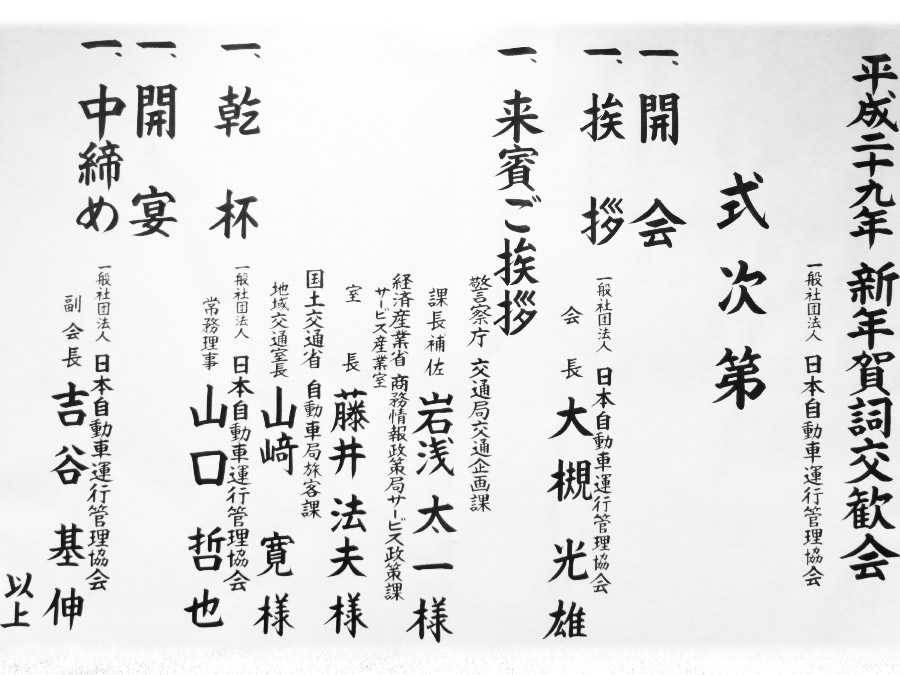 平成二十九年 新年賀詞交歓会
一般社団法人 日本自動車運行管理協会
式次第
一、開会
一、挨拶
一般社団法人 日本自動車運行管理協会
会長 大槻光雄
一、来賓ご挨拶
警察庁 交通局交通企画課
課長補佐 岩浅太一様
経済産業省 商務情報政策局サービス政策課
サービス産業室
室長 藤井法夫様
国土交通省 自動車局旅客課
地域交通室長 山﨑寛様
一、乾杯
一般社団法人 日本自動車運行管理協会
常務理事 山口哲也
一、開宴
一、中締め
一般社団法人 日本自動車運行管理協会
副会長 吉谷基伸
以上